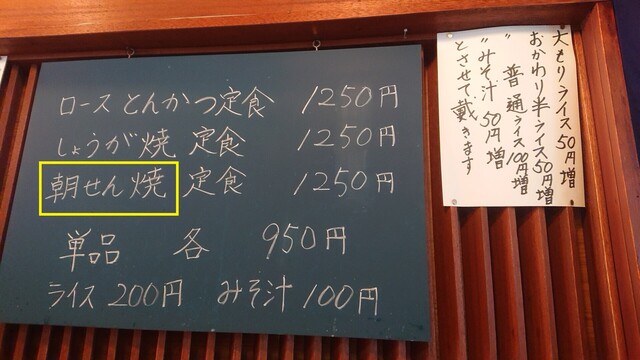 ロースとんかつ定食 1250円
しょうが焼 定食 1250円
朝せん焼 定食 1250円
単品 各 950円
ライス 200円 みそ汁 100円
大もりライス50円増
おかわり半ライス50円増
〃 普通ライス100円増
〃みそ汁 50円増
とさせて戴きます